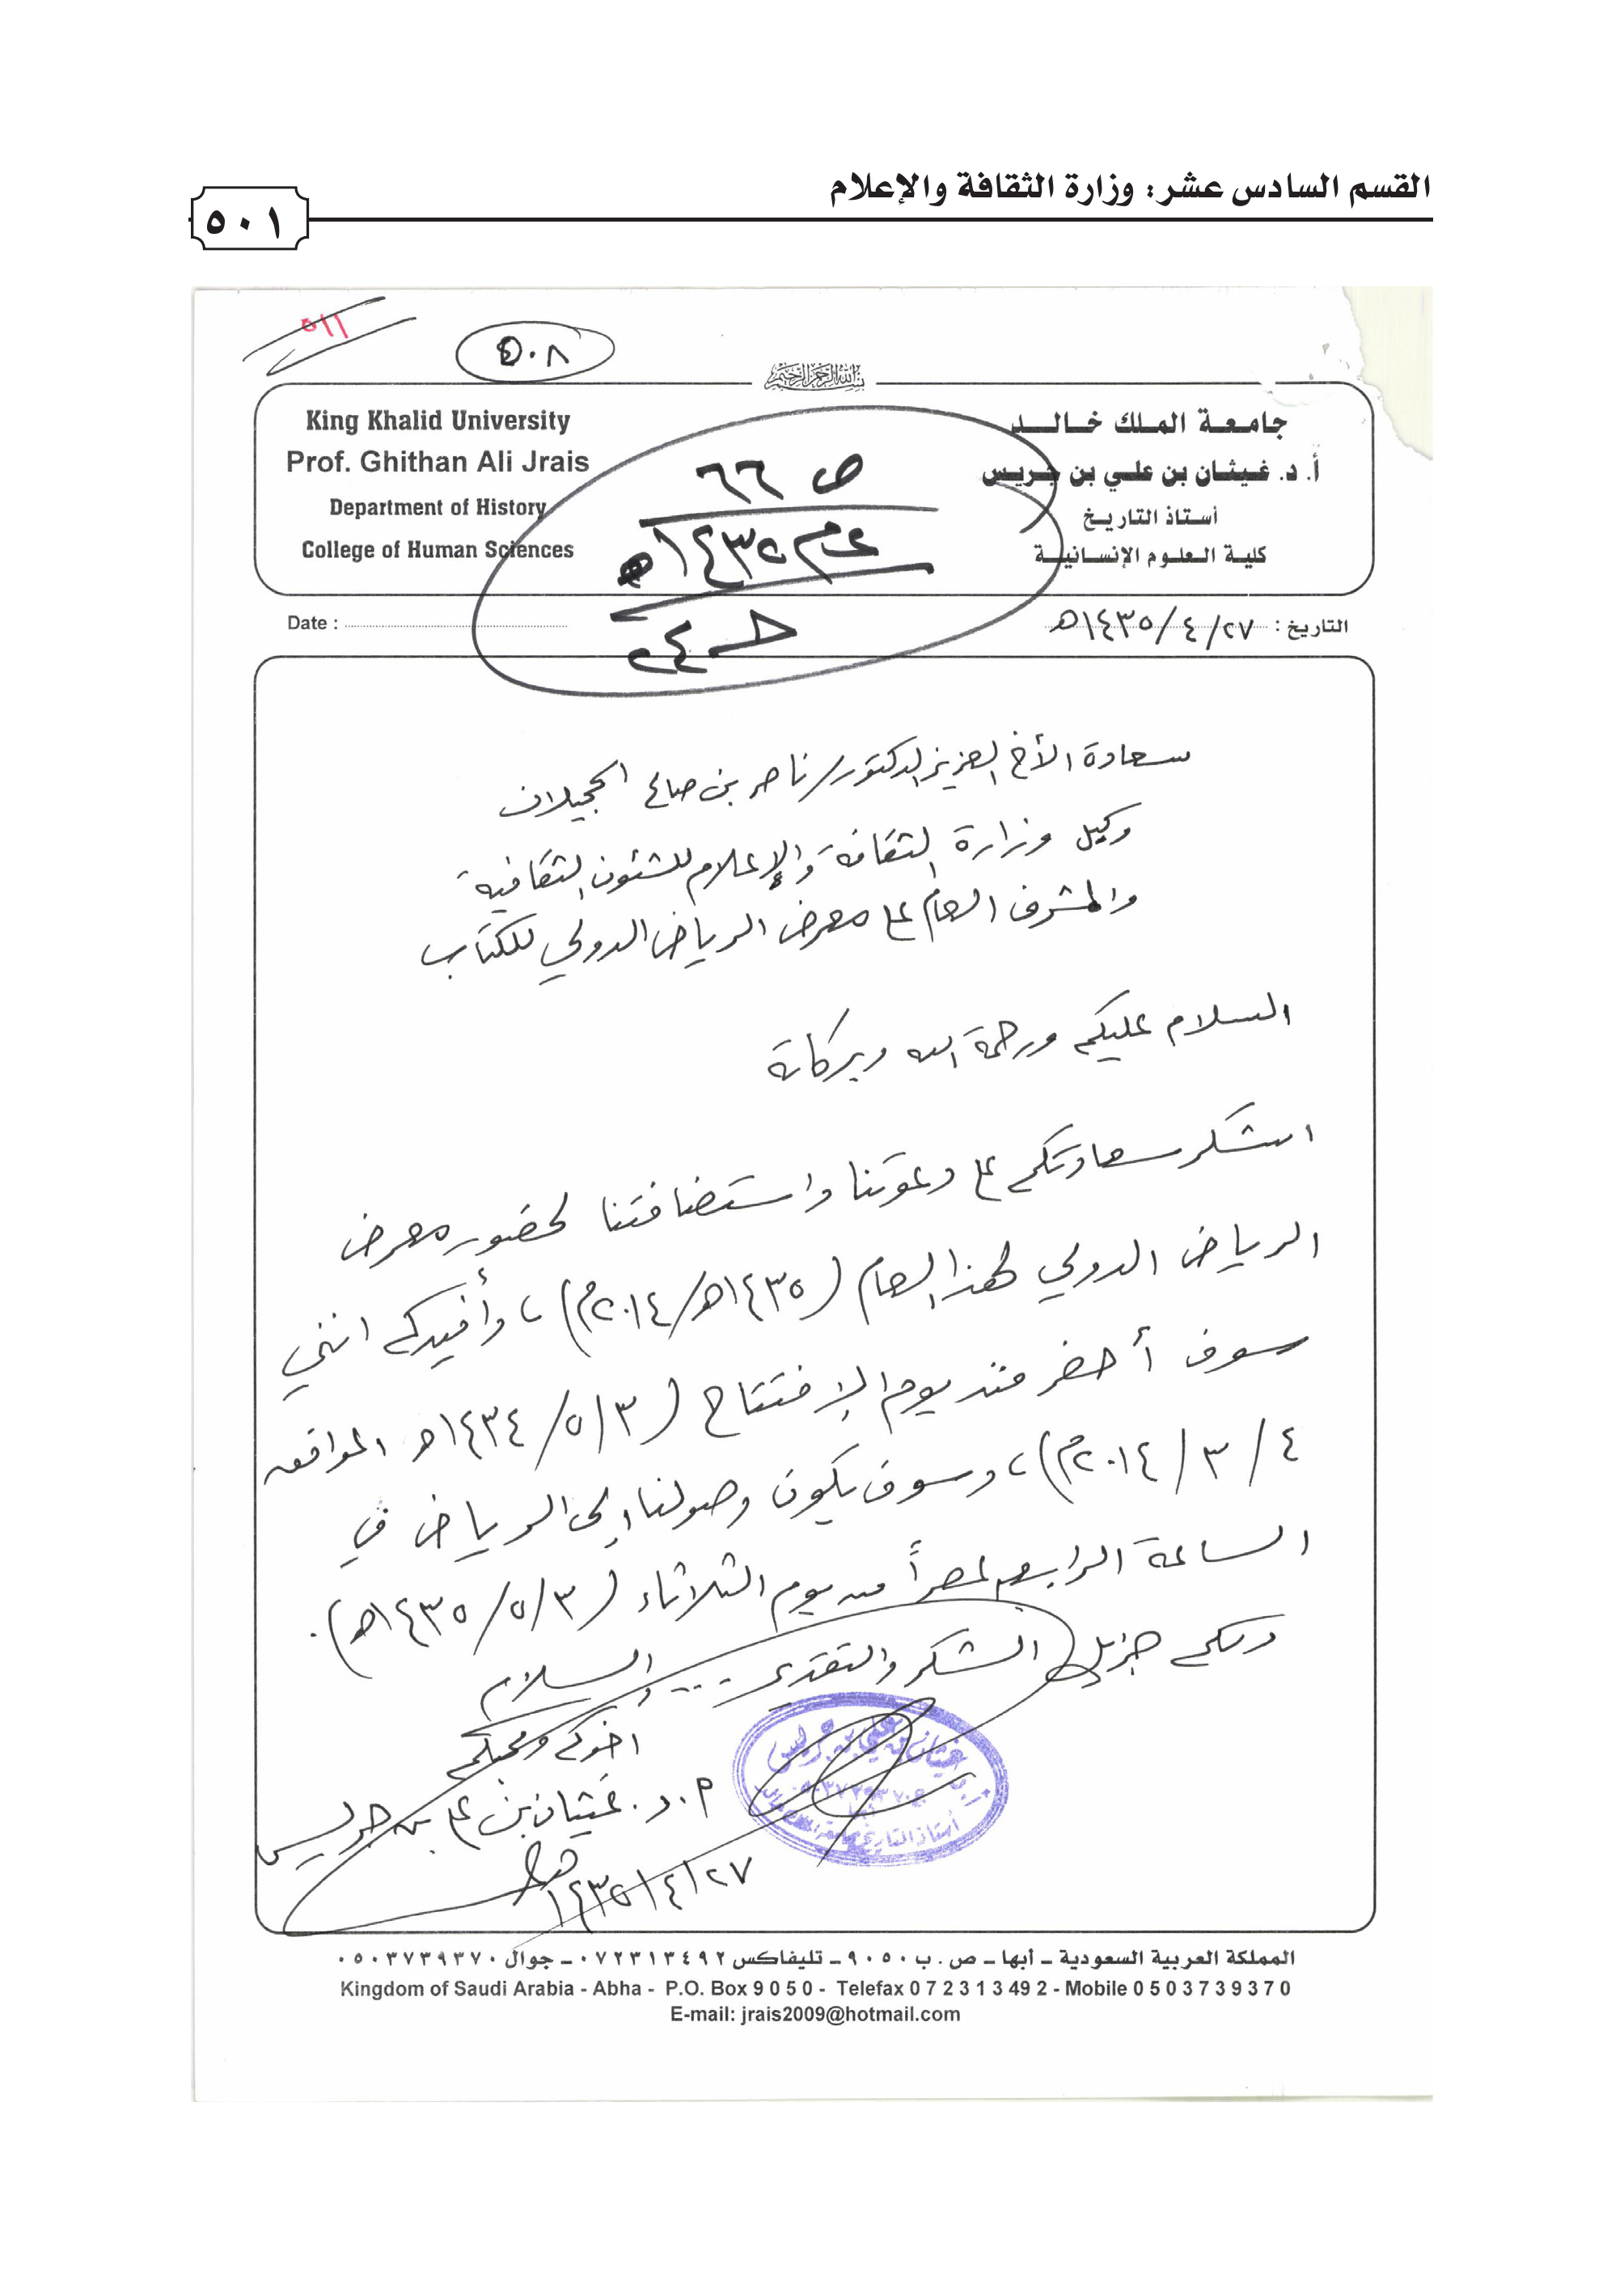 القسم السادس عشر: وزارة الثقافة والإعلام
٥٠١
٥١١
٥٠٨
بسم الله الرحمن الرحيم
جامعة الملك خالد
أ. د. غيثان بن علي بن جريس
أستاذ التاريخ
كلية العلوم الإنسانية
King Khalid University
Prof. Ghithan Ali Jrais
Department of History
College of Human Sciences
ص ٦٦
عام ١٤٣٥هـ
التاريخ: ٢٧/٤/١٤٣٥هـ
Date :
سعادة الأخ العزيز الدكتور/ ناصر بن صالح الحجيلان
وكيل وزارة الثقافة والإعلام للشئون الثقافية
والمشرف العام على معرض الرياض الدولي للكتاب
السلام عليكم ورحمة الله وبركاتة
اشكر سعادتكم على دعوتنا واستضافتنا لحضور معرض
الرياض الدولي لهذا العام (١٤٣٥هـ/٢٠١٤م)، وأفيدكم انني
سوف أحضر منذ يوم الإفتتاح (٣/٥/١٤٣٤هـ الموافق
٤/٣/٢٠١٤م)، وسوف يكون وصولنا إلى الرياض في
الساعة الرابعة عصراً من يوم الثلاثاء (٣/٥/١٤٣٥هـ).
ولكم جزيل الشكر والتقدير ... والسلام
اخوكم ومحبكم
أ.د. غيثان بن علي بن جريس
٢٧/٤/١٤٣٥هـ
أ.د. غيثان بن علي بن جريس
المملكة العربية السعودية - أبها - ص . ب ٩٠٥٠ - تليفاكس ٠٧٢٣١٣٤٩٢ - جوال ٠٥٠٣٧٣٩٣٧٠
Kingdom of Saudi Arabia - Abha - P.O. Box 9 0 5 0 - Telefax 0 7 2 3 1 3 49 2 - Mobile 0 5 0 3 7 3 9 3 7 0
E-mail: jrais2009@hotmail.com